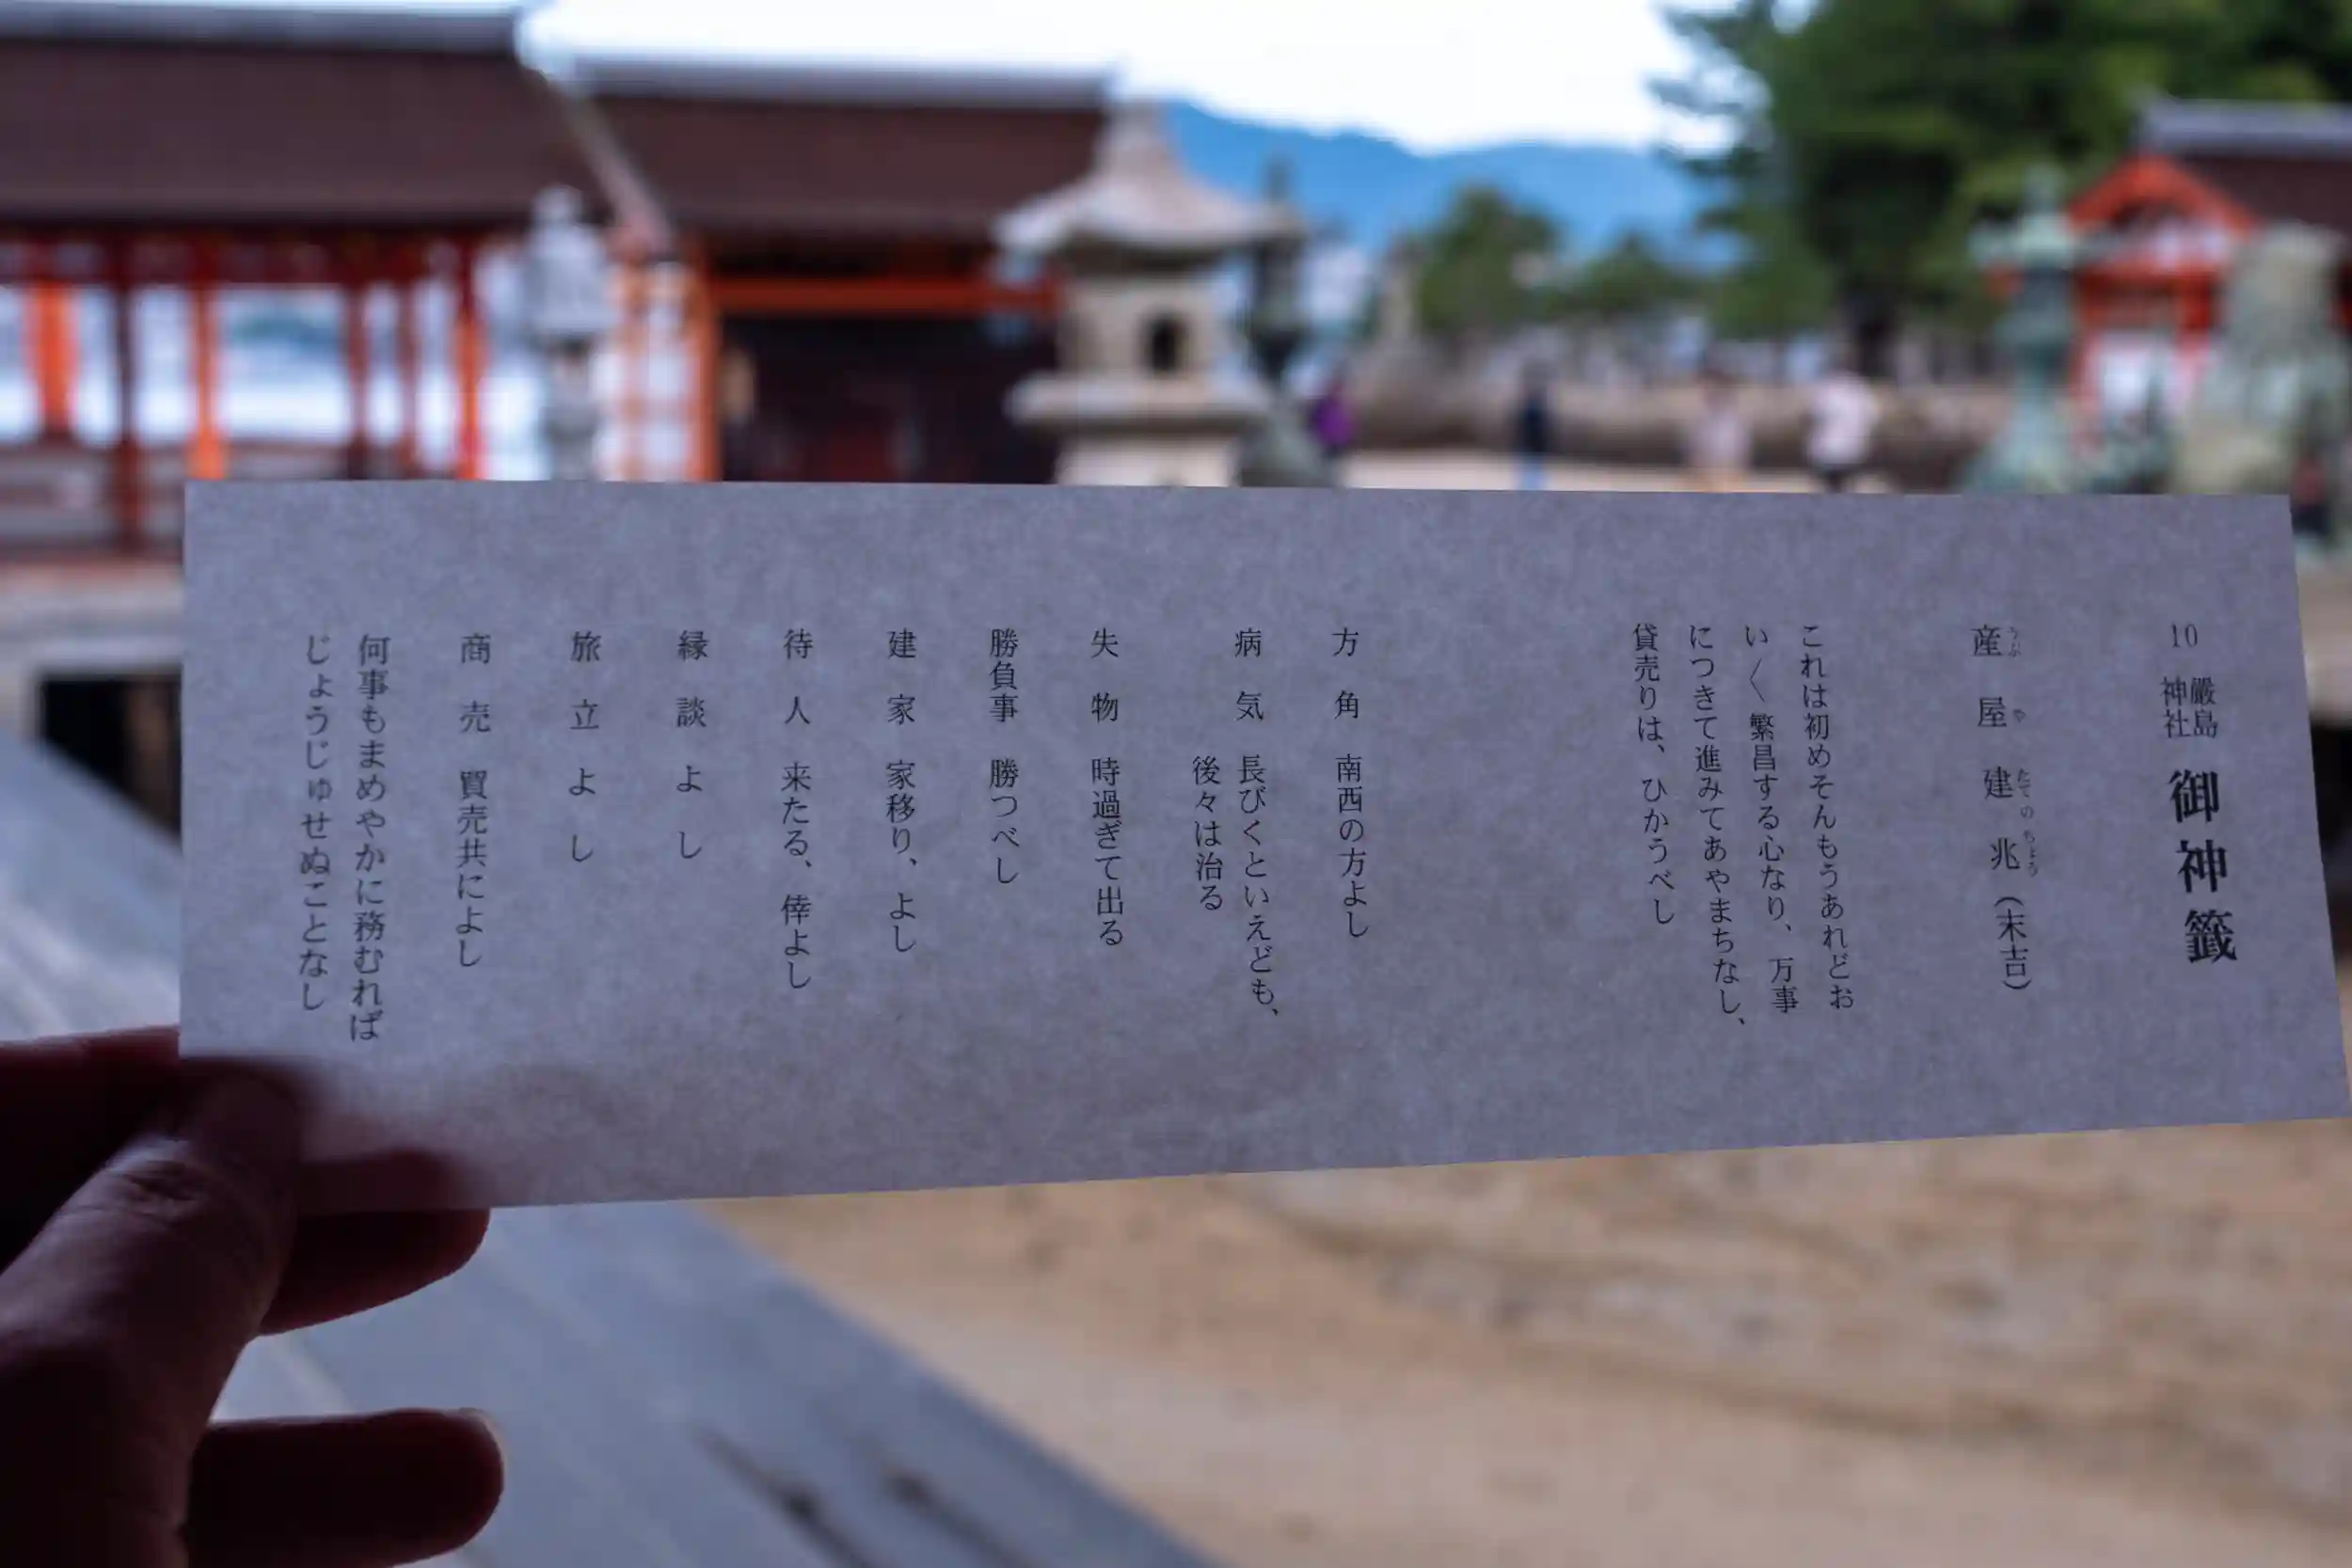 10 嚴島神社 御神籤
産屋建兆(末吉)
うぶ や たての ちょう
これは初めそんもうあれどお
い〱繁昌する心なり、万事
につきて進みてあやまちなし、
貸売りは、ひかうべし
方角 南西の方よし
病気 長びくといえども、
後々は治る
失物 時過ぎて出る
勝負事 勝つべし
建家 家移り、よし
待人 来たる、倖よし
縁談 よし
旅立 よし
商売 買売共によし
何事もまめやかに務むれば
じょうじゅせぬことなし